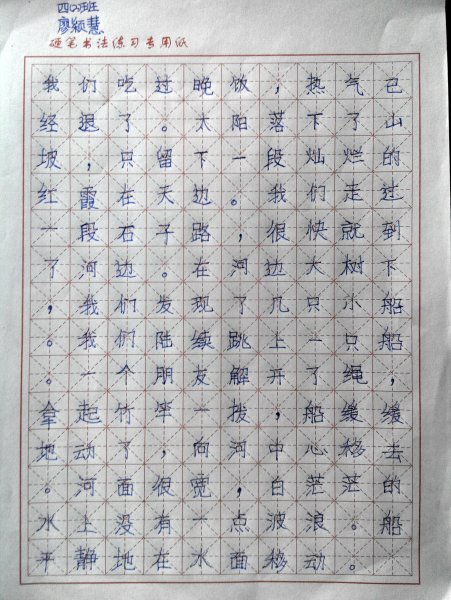 四(2)班
廖颖慧
硬笔书法练习专用纸
我们吃过晚饭，热气已
经退了。太阳落下了山
坡，只留下一段灿烂的
红霞在天边。我们走过
一段石子路，很快就到
了河边。在河边大树下
，我们发现了几只小船
。我们陆续跳上一只船
。一个朋友解开了绳，
拿起竹竿一拨，船缓缓
地动了，向河中心移去
。河面很宽，白茫茫的
水上没有一点波浪。船
平静地在水面移动。